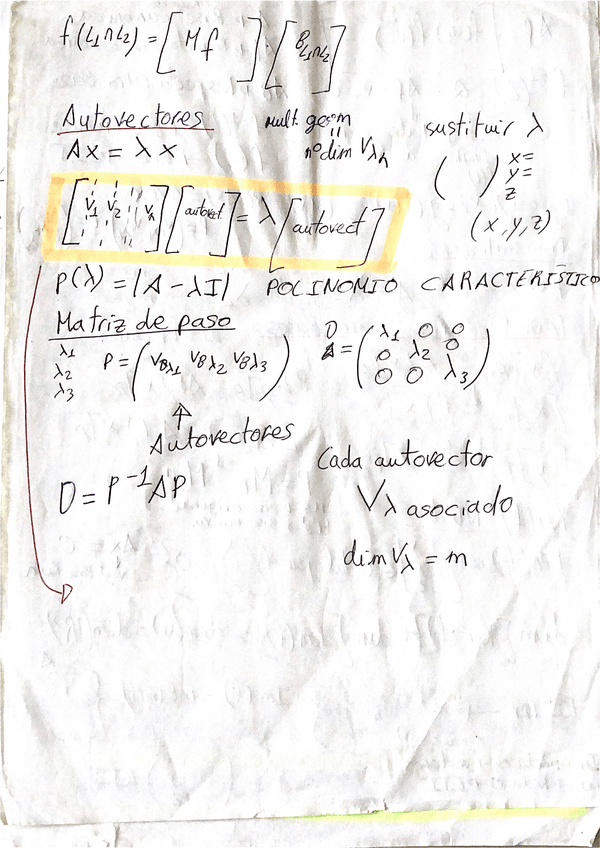 f(L1∩L2) = [Mf] · [B L1∩L2]
Autovectores
Ax = λx
mult. geom
=
nº dim Vλn
sustituir λ
( ) x=
y=
z
(x, y, z)
[V1 V2 Vn] [autovect.] = λ [autovect]
P(λ) = |A - λI| POLINOMIO CARACTERÍSTICO
Matriz de paso
λ1
λ2
λ3
P = (VBλ1 VBλ2 VBλ3)
D = (λ1 0 0
0 λ2 0
0 0 λ3)
↑
Autovectores
D = P⁻¹AP
Cada autovector
Vλ asociado
dim Vλ = m